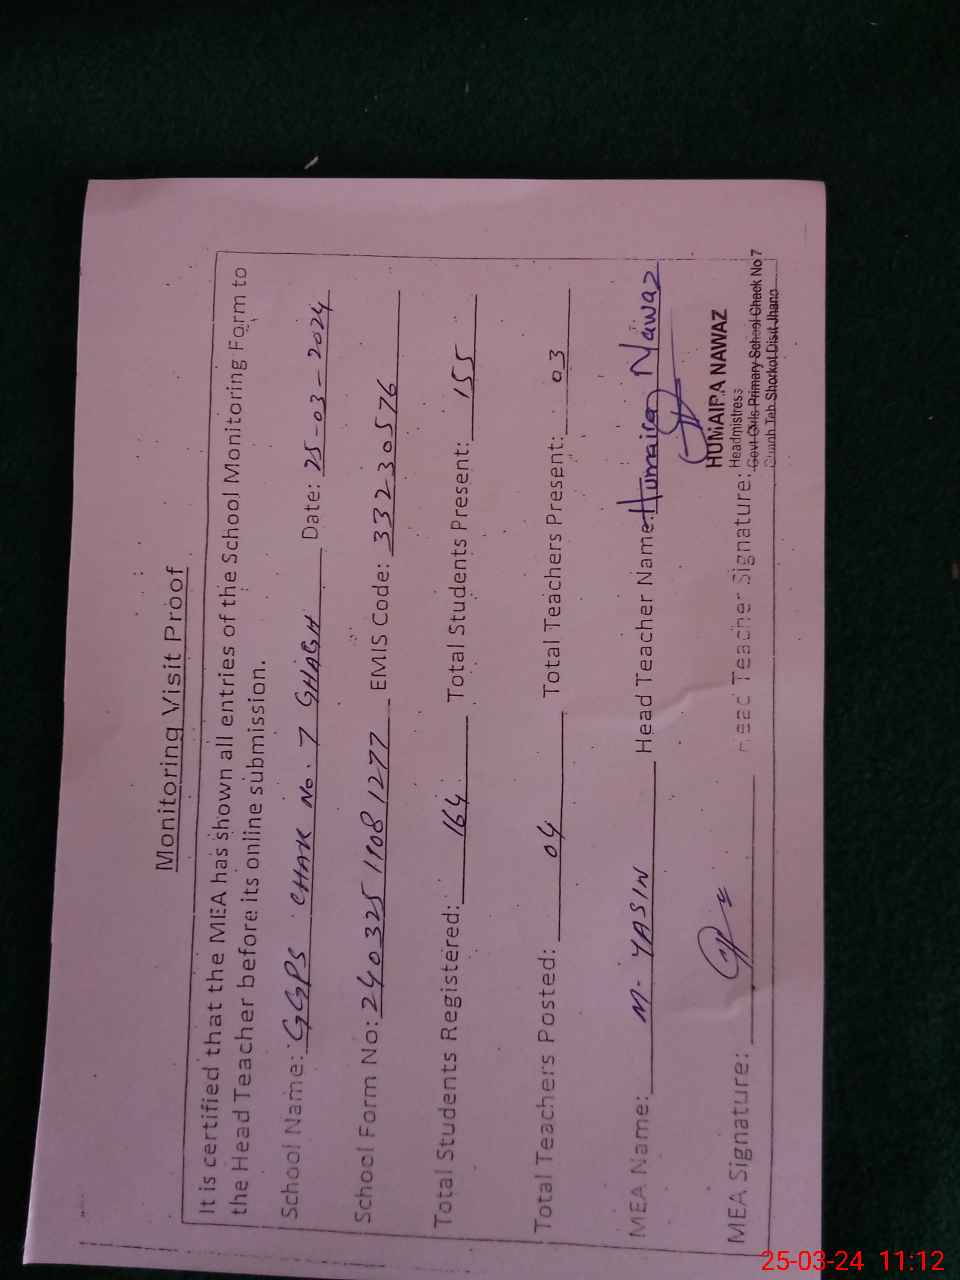 Monitoring Visit Proof
It is certified that the MEA has shown all entries of the School Monitoring Form to
the Head Teacher before its online submission.
School Name: GGPS CHAK No. 7 GHAGH Date: 25-03-2024
School Form No: 240325 1908 1277 EMIS Code: 33230576
Total Students Registered: 164 Total Students Present: 155
Total Teachers Posted: 04 Total Teachers Present: 03
MEA Name: M. YASIN Head Teacher Name: Humaira Nawaz
MEA Signature: Head Teacher Signature:
HUMAIRA NAWAZ
Headmistress
Govt Girls Primary School Chack No 7
Teh Shorkot Distt Jhang
25-03-24 11:12